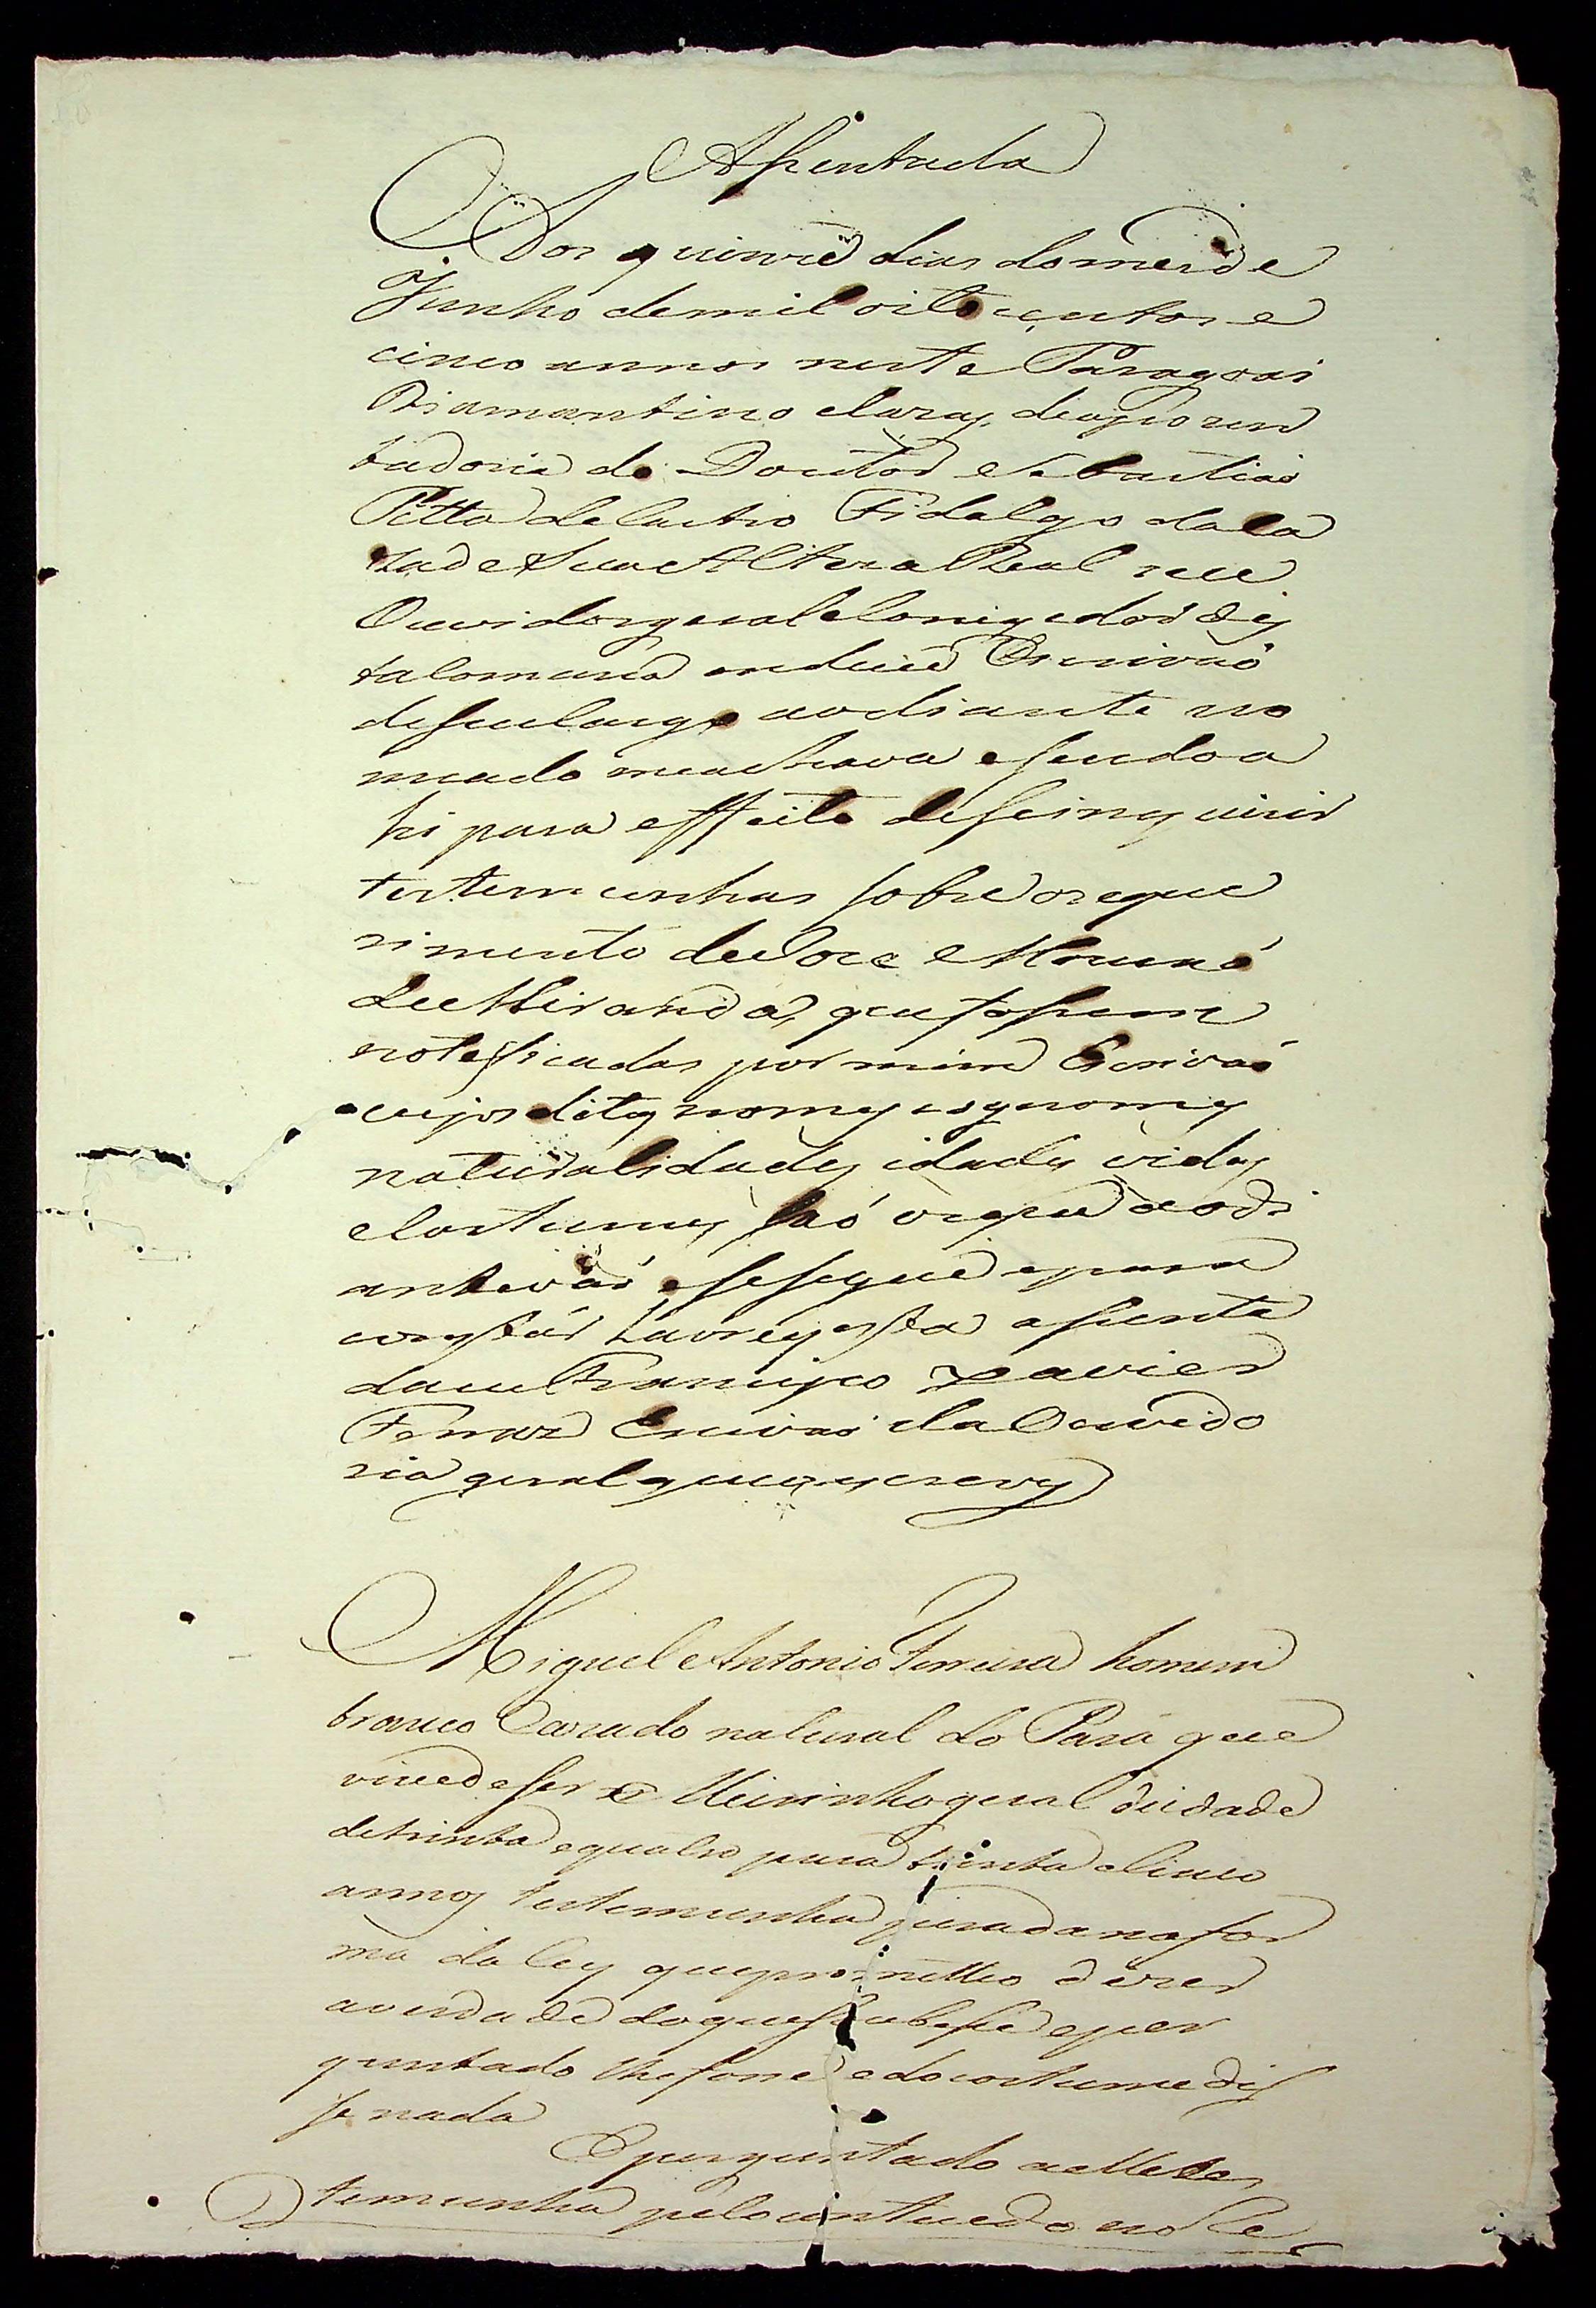 Assentada
Aos quinze dias do mes de
Junho de mil oito centos e
cinco annos neste Paragoai
Diamantino e Cazas de apozen
tadoria do Doutor Sebastiaõ
Pitta de Castro Fidalgo da Ca
za de Sua Alteza Real seu
Ouvidor geral e Corregedor des
ta Comarca onde eu Escrivaõ
de seu Cargo ao diante no
meado me achava e sendo a
hi para effeito de se inquirir
testemunhas sobre o reque
rimento de Joze Manoel
de Miranda, que foraõ
noteficadas por mim Escrivaõ
cujos ditos nomes cognomes
naturalidades idades vidas
e Costumes saõ o que ao di
ante vaó e se segue e para
constár Lavrey esta assenta
da eu Francisco Xavier
Ferraz Escrivaõ da Ouvido
ria geral que o escrevy
Miguel Antonio Ferreira homem
branco Cazado natural do Pará que
vive de ser Meirinho geral de idade
de trinta e quatro para trinta e Cinco
annos testemunha jurada na for
ma da ley que prometteo dizer
a verdade do que soubesse e per
guntado lhe fosse e do costume dis
se nada
E perguntado a elle tes
temunha pelo contheudo no Re